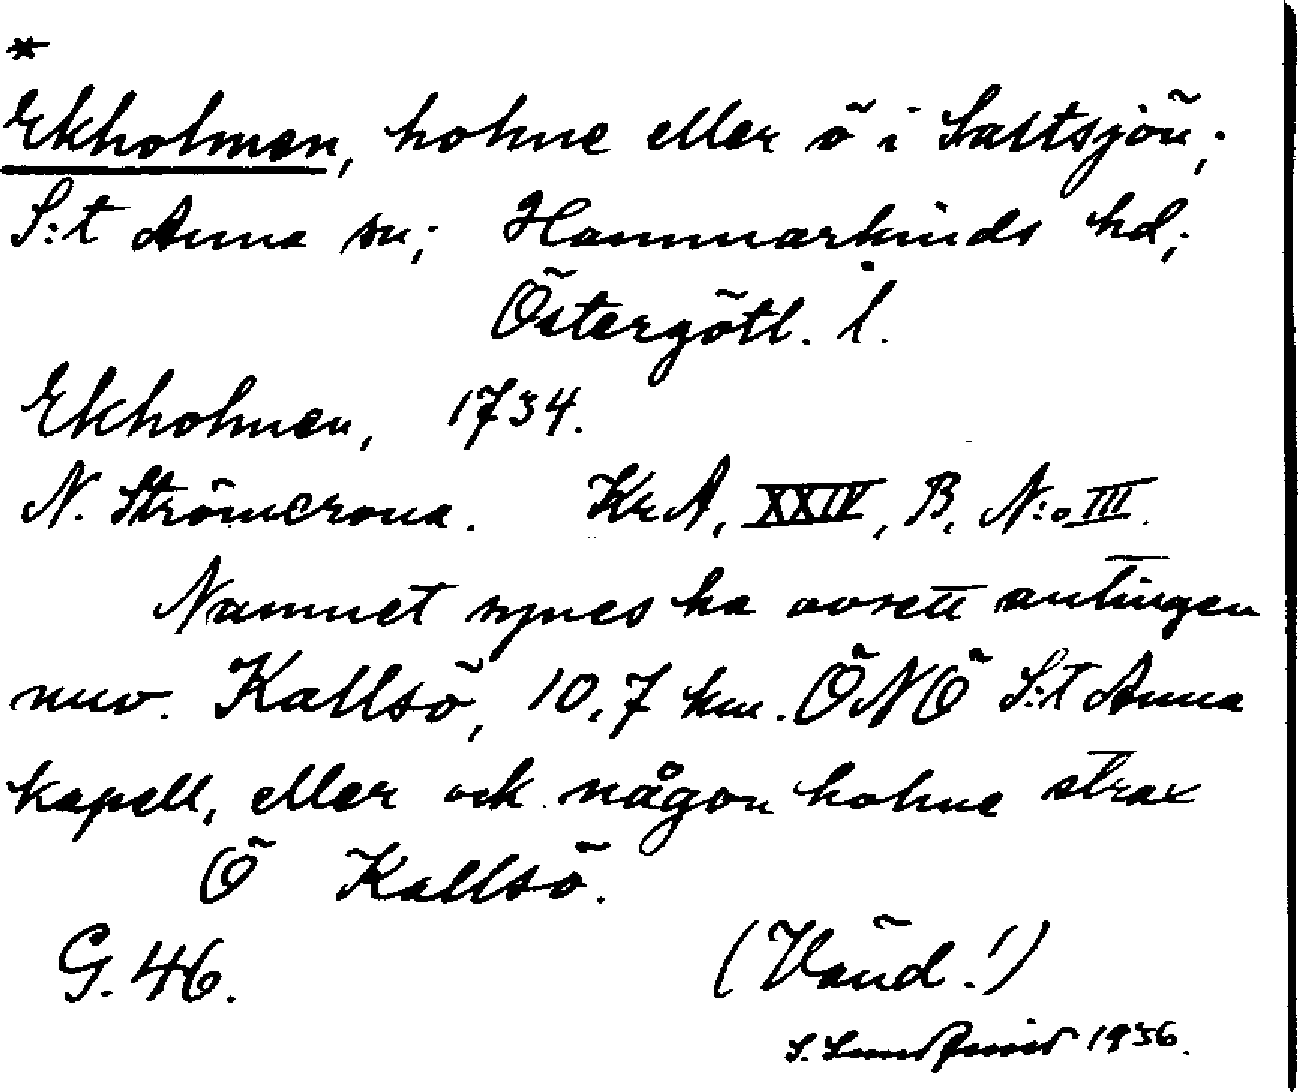 *
Ekholmen, holme eller ö i Saltsjön;
S:t Anna sn; Hammarkinds hd;
Östergötl. l.
Ekholmen, 1734.
N. Strömcrona. KrA, XXIV, B, N:o III.
Namnet synes ha avsett antingen
nuv. Kallsö, 10,7 km. ÖNÖ S:t Anna
kapell, eller ock någon holme strax
Ö Kallsö.
G. 46. (Vänd!)
S. Lundqvist 1936.